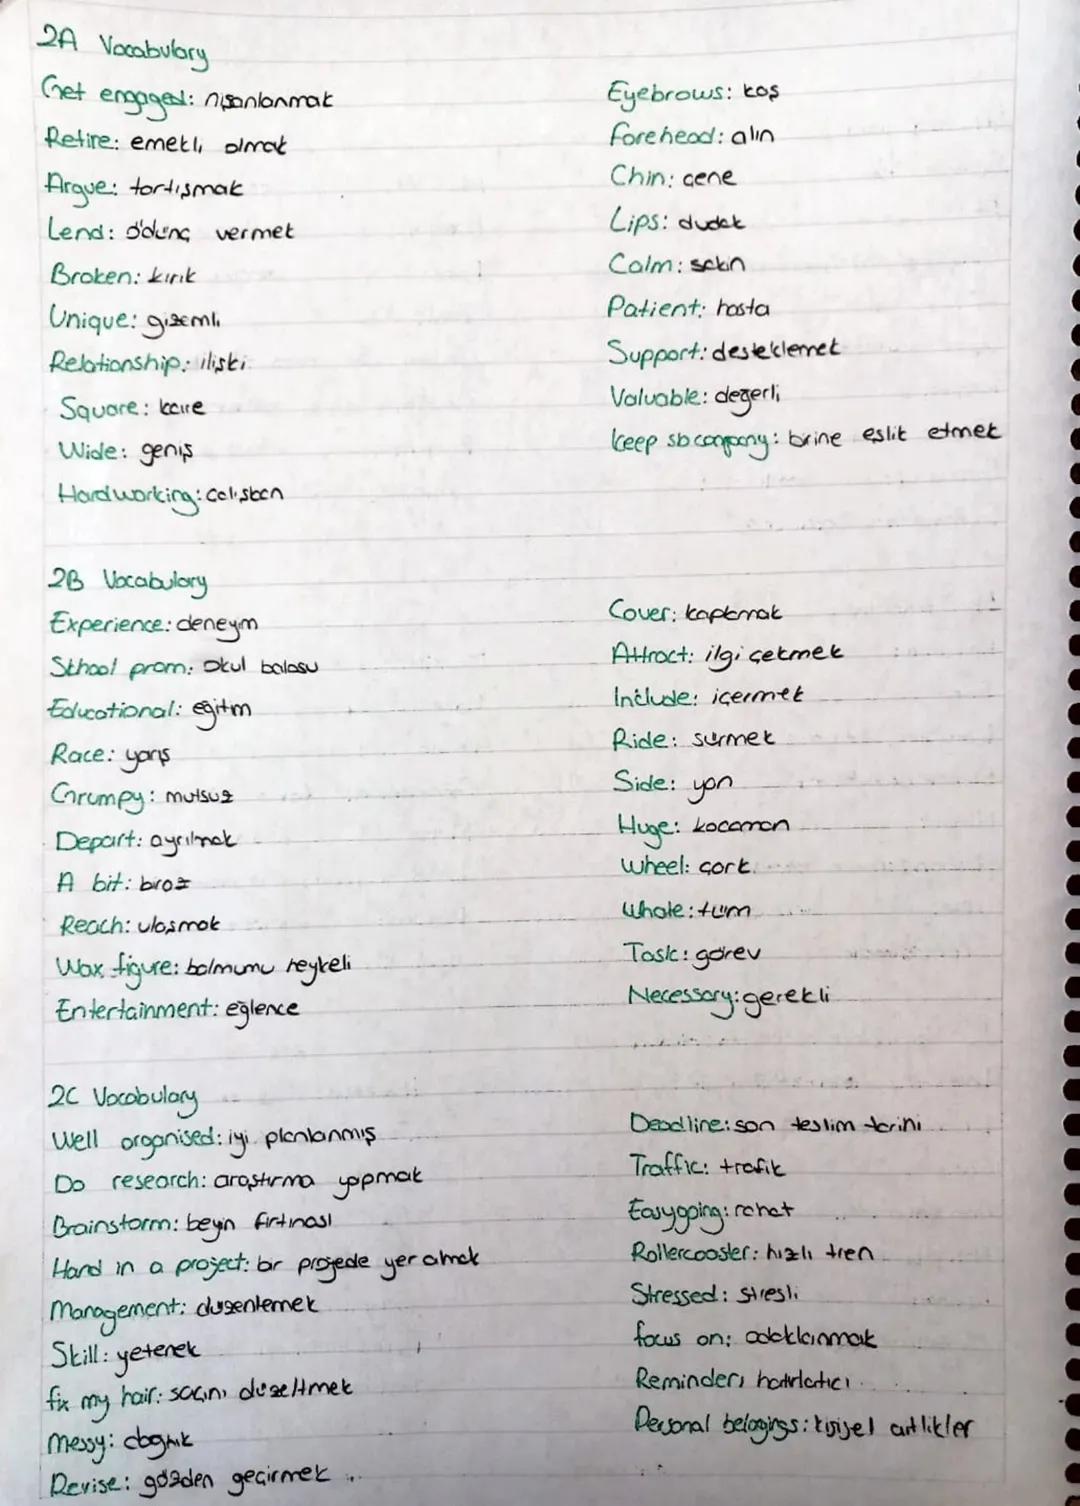 2A Vocabulary
Get engaged: nişanlanmak
Retire: emekli olmak
Argue: tartışmak
Lend: ödünç vermek
Broken: kırık
Unique: gizemli
Relationship: ilişki
Square: kare
Wide: geniş
Hardworking: çalışkan
Eyebrows: kaş
Forehead: alın
Chin: çene
Lips: dudak
Calm: sakin
Patient: hasta
Support: desteklemek
Valuable: değerli
Keep sb company: birine eşlik etmek
2B Vocabulary
Experience: deneyim
School prom: Okul balosu
Educational: eğitim
Race: yarış
Grumpy: mutsuz
Depart: ayrılmak
A bit: biraz
Reach: ulaşmak
Wax figure: balmumu heykeli
Entertainment: eğlence
Cover: kaplamak
Attract: ilgi çekmek
Include: içermek
Ride: sürmek
Side: yön
Huge: kocaman
Wheel: çark
Whole: tüm
Task: görev
Necessary: gerekli
2C Vocabulary
Well organised: iyi planlanmış
Do research: araştırma yapmak
Brainstorm: beyin fırtınası
Hand in a project: bir projede yer almak
Management: düzenlemek
Skill: yetenek
fix my hair: saçını düzeltmek
Messy: dağınık
Revise: gözden geçirmek
Deadline: son teslim tarihi
Traffic: trafik
Easygoing: rahat
Rollercoaster: hızlı tren
Stressed: stresli
focus on: odaklanmak
Reminder: hatırlatıcı
Personal belogings: kişisel